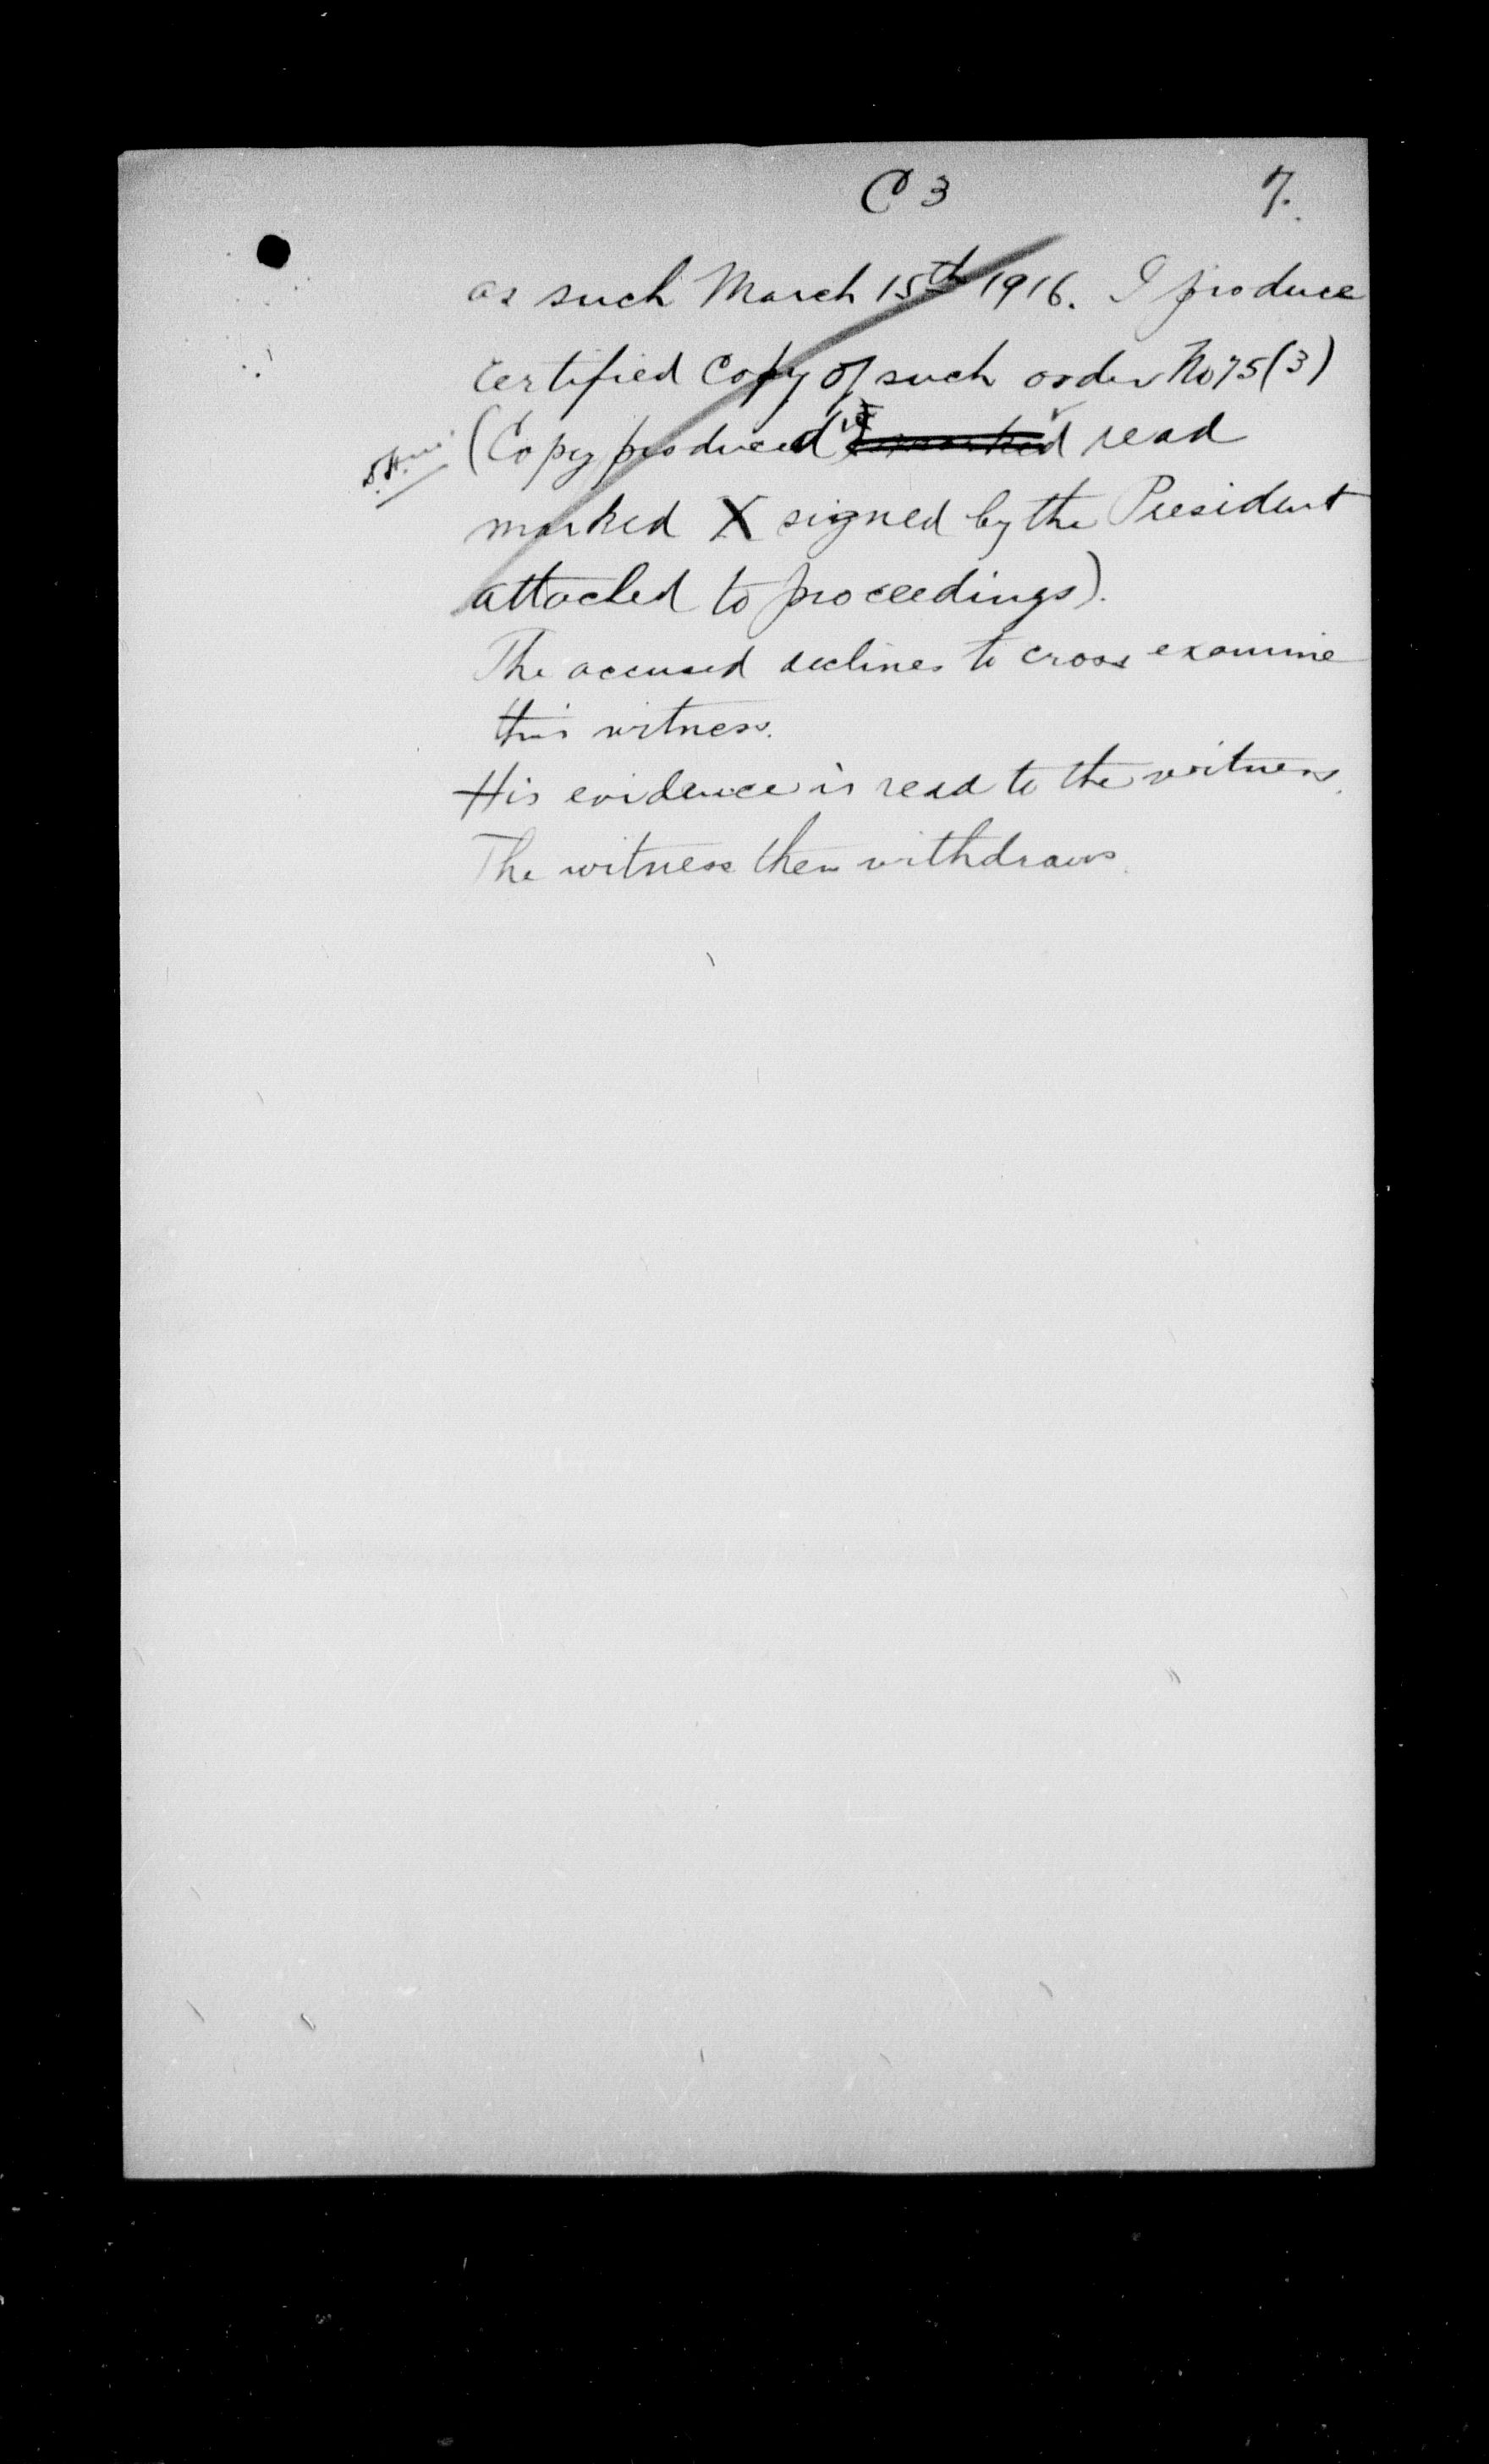 C 3 7.
as such March 15th 1916. I produce
certified Copy of such order No 75(3)
(Copy produced is read
marked X signed by the President
attached to proceedings).
The accused declines to cross examine
this witness.
His evidence is read to the witness.
The witness then withdraws.